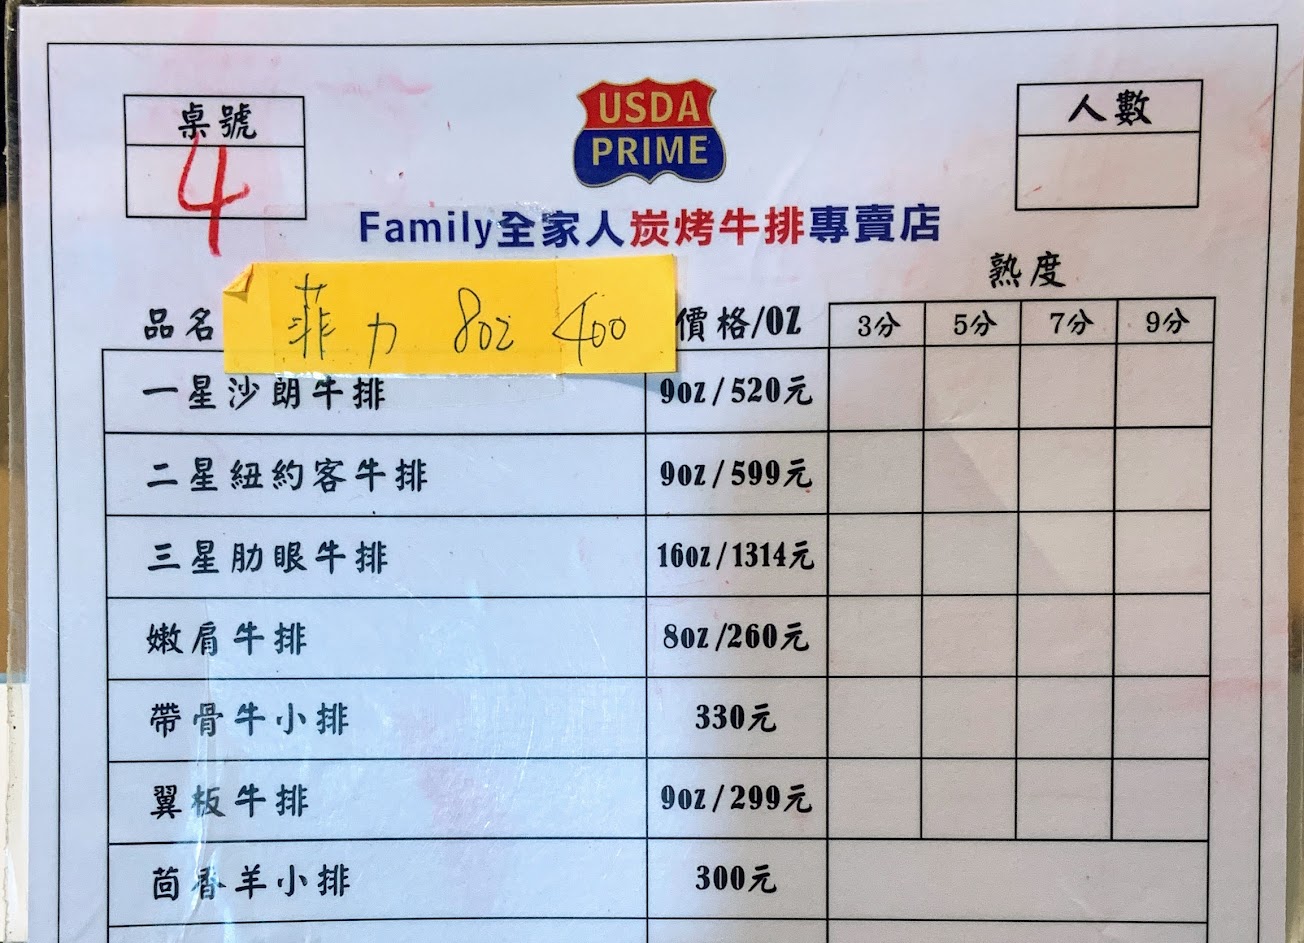 桌號
4
USDA
PRIME
人數
Family全家人炭烤牛排專賣店
熟度
菲力 8oz 400
品名 價格/OZ 3分 5分 7分 9分
一星沙朗牛排 9oz/520元
二星紐約客牛排 9oz/599元
三星肋眼牛排 16oz/1314元
嫩肩牛排 8oz/260元
帶骨牛小排 330元
翼板牛排 9oz/299元
茴香羊小排 300元